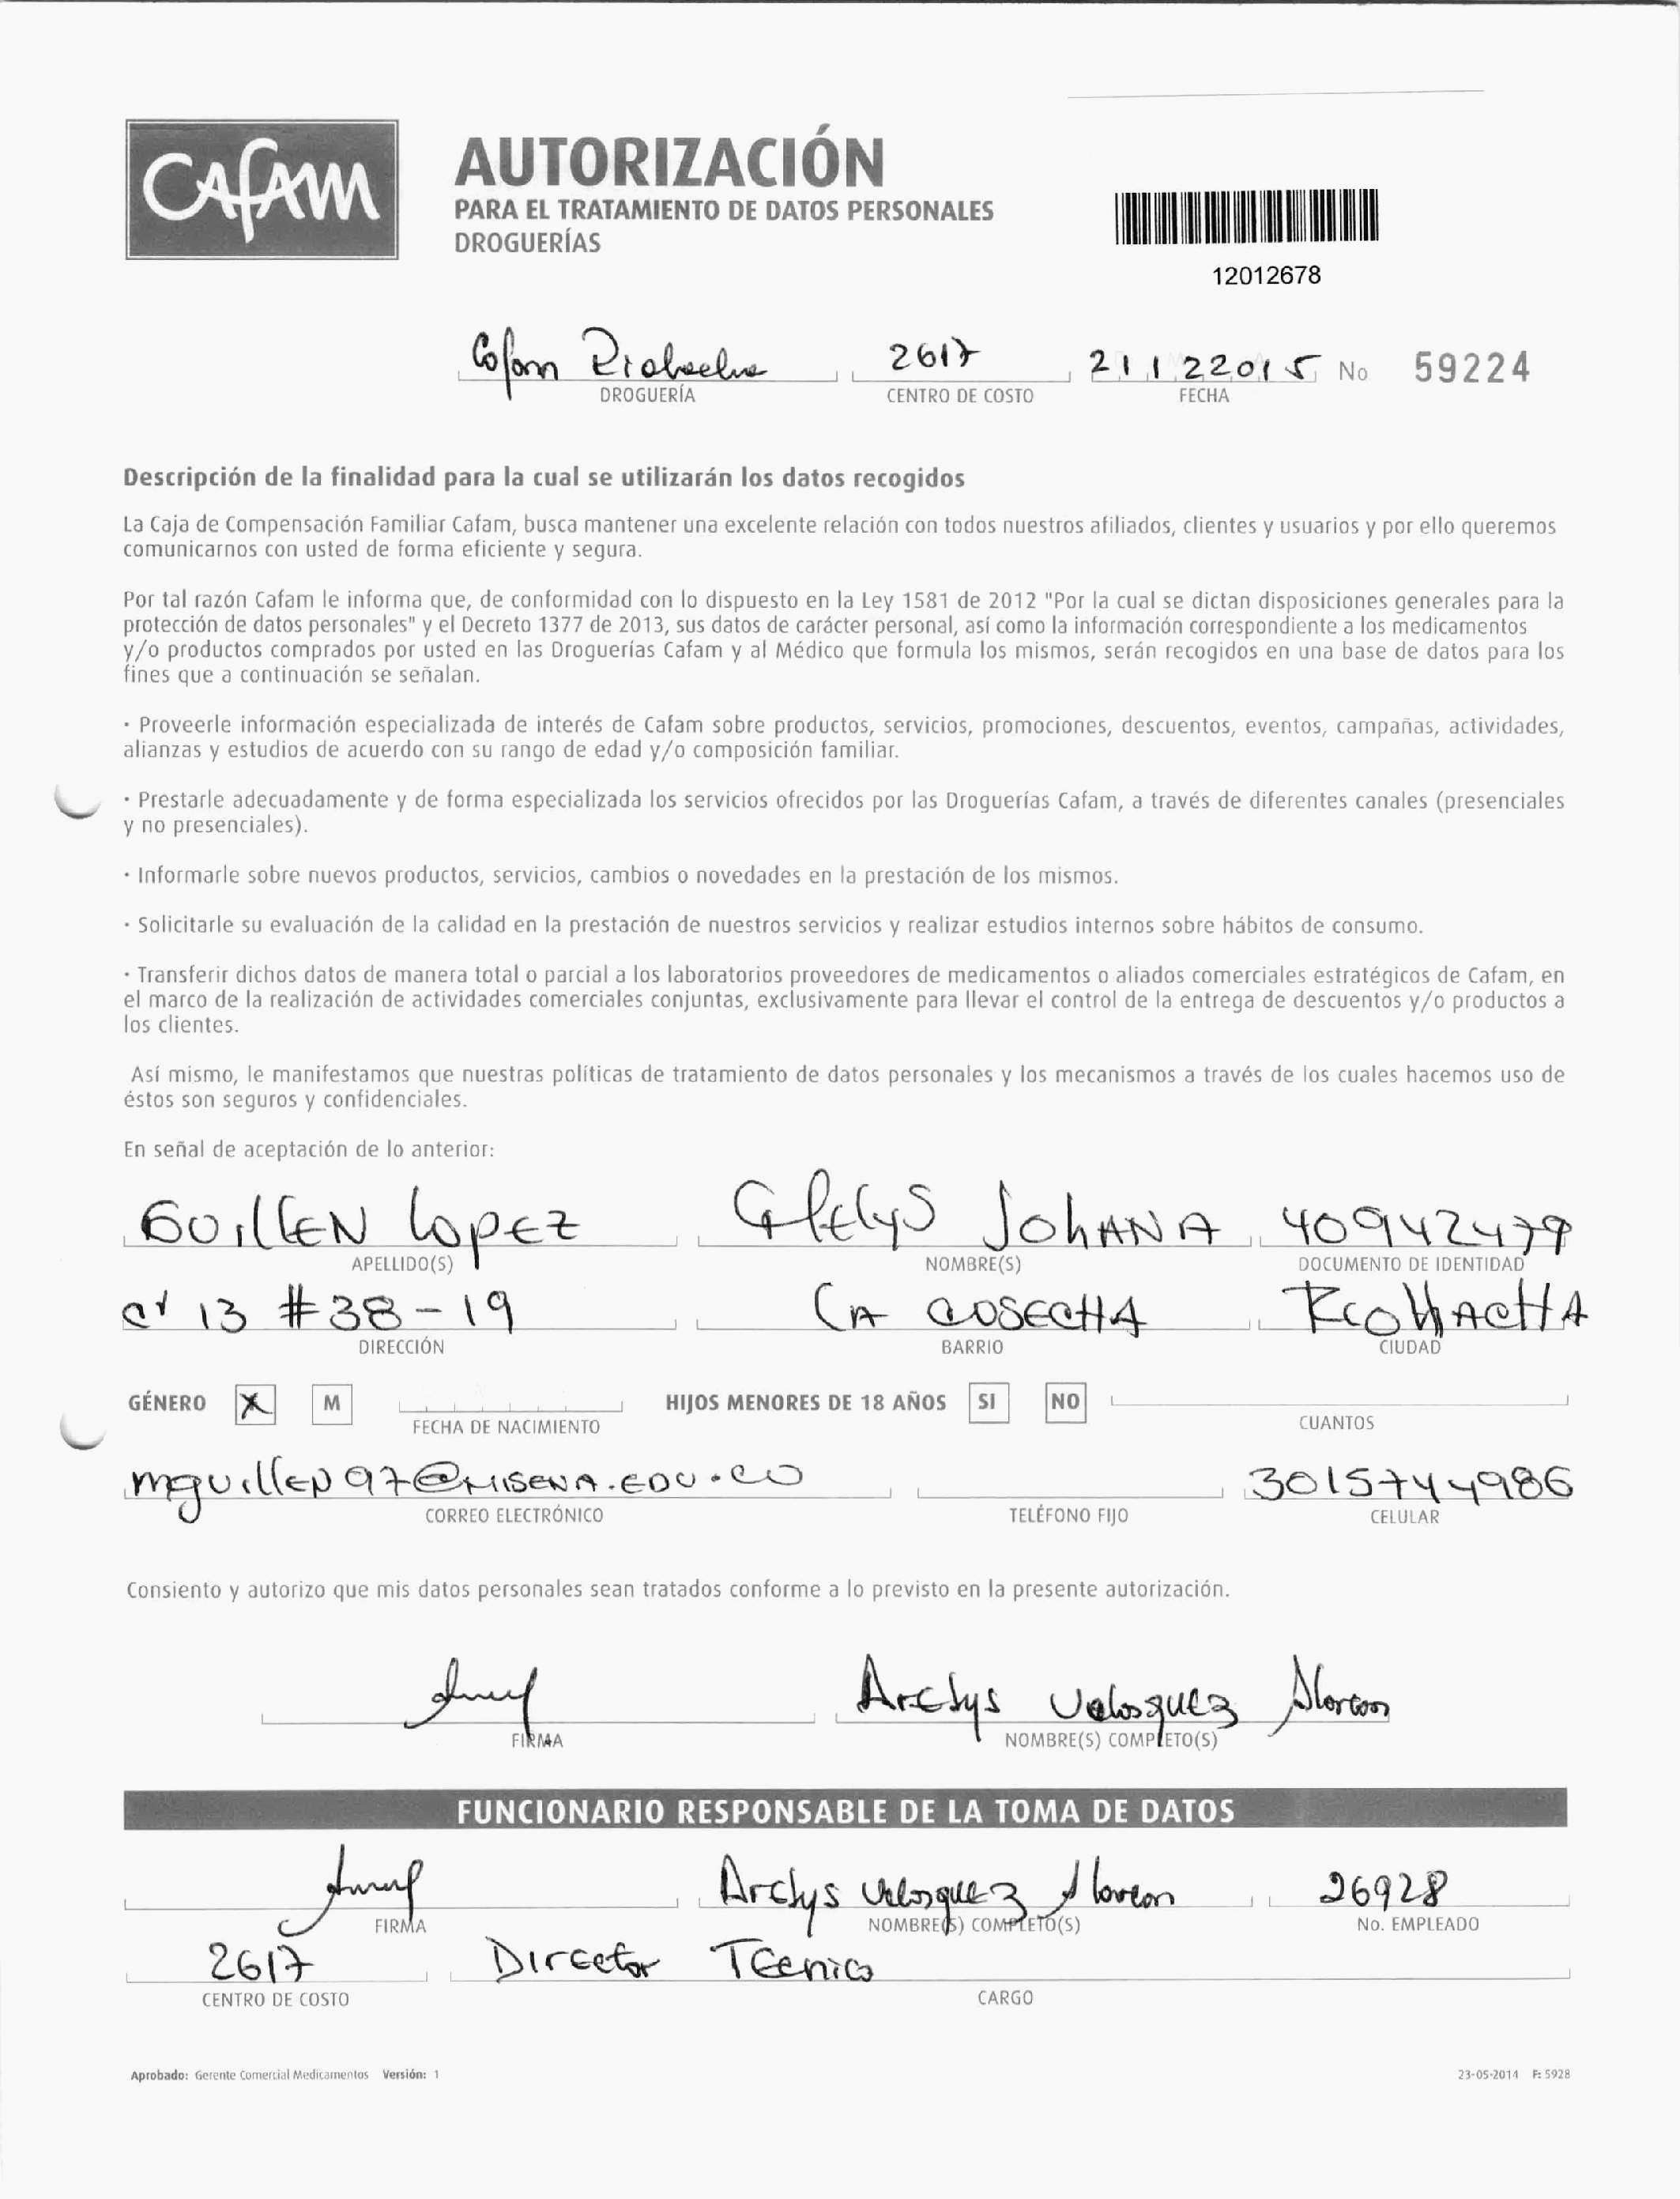 CAFAM
AUTORIZACIÓN
PARA EL TRATAMIENTO DE DATOS PERSONALES
DROGUERÍAS
12012678
Cafam Riohacha 2617 21122015 No 59224
DROGUERÍA CENTRO DE COSTO FECHA
Descripción de la finalidad para la cual se utilizarán los datos recogidos
La Caja de Compensación Familiar Cafam, busca mantener una excelente relación con todos nuestros afiliados, clientes y usuarios y por ello queremos
comunicarnos con usted de forma eficiente y segura.
Por tal razón Cafam le informa que, de conformidad con lo dispuesto en la Ley 1581 de 2012 "Por la cual se dictan disposiciones generales para la
protección de datos personales" y el Decreto 1377 de 2013, sus datos de carácter personal, así como la información correspondiente a los medicamentos
y/o productos comprados por usted en las Droguerías Cafam y al Médico que formula los mismos, serán recogidos en una base de datos para los
fines que a continuación se señalan.
· Proveerle información especializada de interés de Cafam sobre productos, servicios, promociones, descuentos, eventos, campañas, actividades,
alianzas y estudios de acuerdo con su rango de edad y/o composición familiar.
· Prestarle adecuadamente y de forma especializada los servicios ofrecidos por las Droguerías Cafam, a través de diferentes canales (presenciales
y no presenciales).
· Informarle sobre nuevos productos, servicios, cambios o novedades en la prestación de los mismos.
· Solicitarle su evaluación de la calidad en la prestación de nuestros servicios y realizar estudios internos sobre hábitos de consumo.
· Transferir dichos datos de manera total o parcial a los laboratorios proveedores de medicamentos o aliados comerciales estratégicos de Cafam, en
el marco de la realización de actividades comerciales conjuntas, exclusivamente para llevar el control de la entrega de descuentos y/o productos a
los clientes.
Así mismo, le manifestamos que nuestras políticas de tratamiento de datos personales y los mecanismos a través de los cuales hacemos uso de
éstos son seguros y confidenciales.
En señal de aceptación de lo anterior:
GUILLEN LOPEZ JOHANA 40942479
APELLIDO(S) NOMBRE(S) DOCUMENTO DE IDENTIDAD
cr 13 #38-19 LA COSECHA RIOHACHA
DIRECCIÓN BARRIO CIUDAD
GÉNERO X M HIJOS MENORES DE 18 AÑOS SI NO
FECHA DE NACIMIENTO CUANTOS
mguillen97@MISENA.EDU.CO 3015744986
CORREO ELECTRÓNICO TELÉFONO FIJO CELULAR
Consiento y autorizo que mis datos personales sean tratados conforme a lo previsto en la presente autorización.
Arelys Velasquez Alarcon
FIRMA NOMBRE(S) COMPLETO(S)
FUNCIONARIO RESPONSABLE DE LA TOMA DE DATOS
Arelys Velasquez Alarcon 26928
FIRMA NOMBRE(S) COMPLETO(S) No. EMPLEADO
2617 Director Tecnico
CENTRO DE COSTO CARGO
Aprobado: Gerente Comercial Medicamentos Versión: 1 23-05-2014 F: 5928